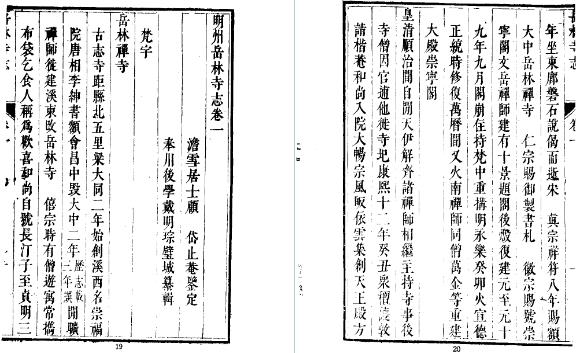 明州岳林寺志卷一
澹雪居士顧 岱止菴鑒定
奉川後學戴明琮璧城纂輯
梵宇
岳林禪寺
古志寺距縣北五里梁大同二年始創溪西名崇福
院唐相李紳書額會昌中毀大中二年歷志載三年誤閑曠
禪師徙建溪東改岳林寺 僖宗時有僧遊寓常攜
布袋乞食人稱為歡喜和尚自號長汀子至貞明三
19
年坐東廊磐石說偈而逝宋 真宗祥符八年賜額
大中岳林禪寺 仁宗賜御製書札 徽宗賜號崇
寧閣文岳禪師建有十景題閣後燬復建元至元十
九年九月閣崩住持梵中重搆明永樂癸卯火宣德
正統時修復萬曆間又火南禪師同僧萬金等重建
大殿崇寧閣
皇清順治間自閒天伊解齊諸禪師相繼主持寺事後
寺僧因官逋他徙寺圯康熙十二年癸丑眾檀護敦
請楷菴和尚入院大暢宗風皈依雲集創天王殿方
20